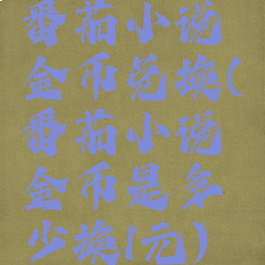 番茄小说
金币兑换(
番茄小说
金币是多
少换1元)